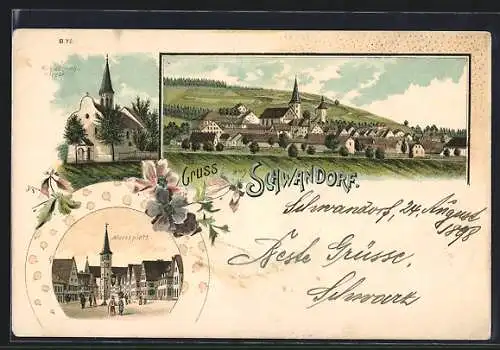 Gruss
SCHWANDORF.
Marktplatz
Schwandorf, 24. August
1898
Beste Grüsse,
Schwarz